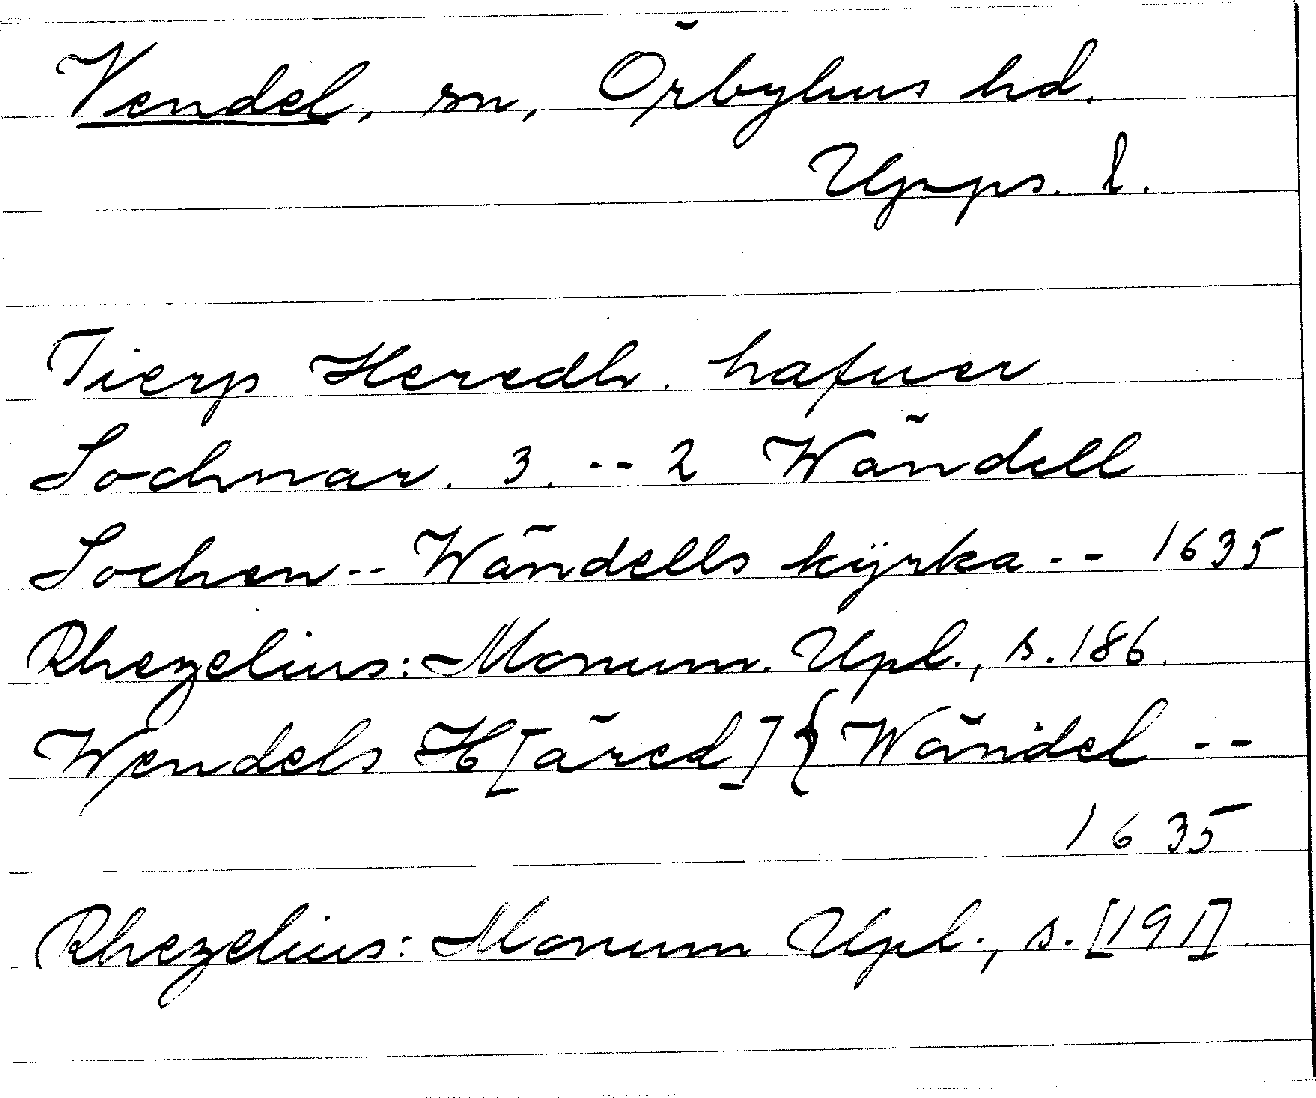 Vendel, sn, Örbyhus hd.
Upps. l.
Tierp Heredh. hafuer
Sochnar. 3. -- 2 Wändell
Sochen -- Wändells kÿrka -- 1635
Rhezelius: Monum. Upl., s. 186.
Wendels H[äred] { Wändel --
1635
Rhezelius: Monum Upl., s. [191]